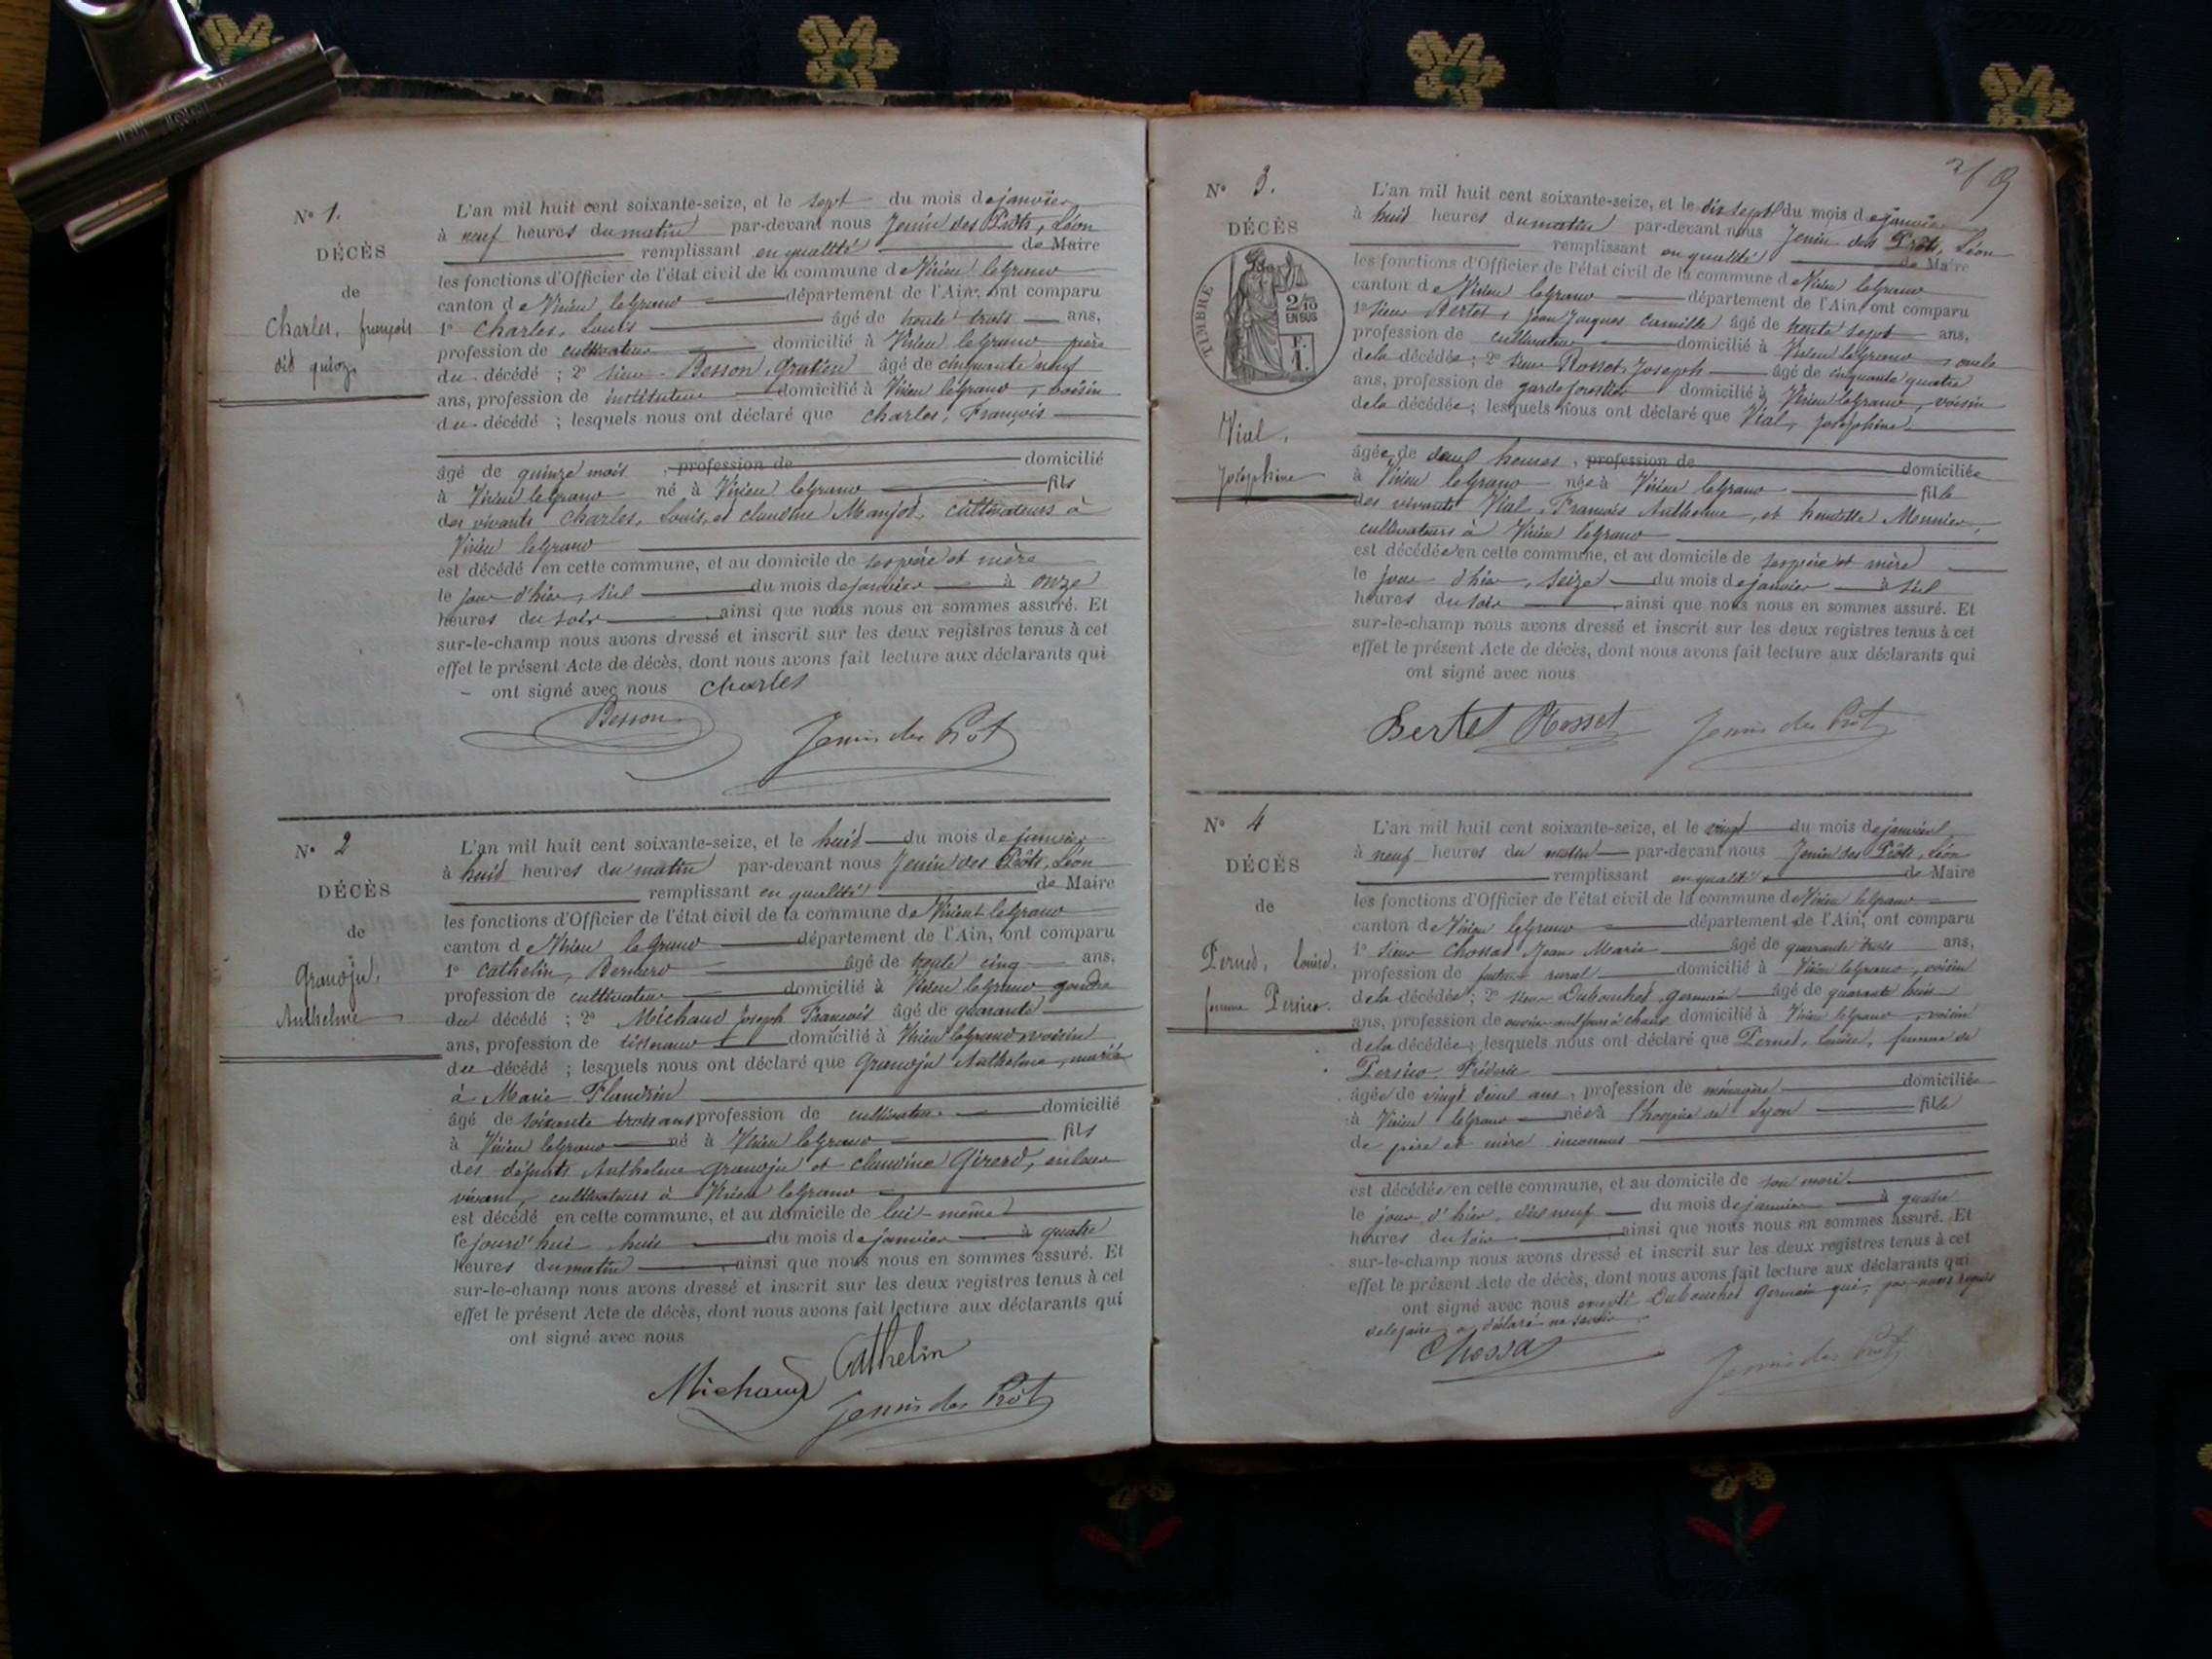 N° 1.
DÉCÈS
de
Charles, françois
dit quioz
L'an mil huit cent soixante-seize, et le sept du mois de janvier
à neuf heures du matin par-devant nous Jenin des Prôts, Léon
remplissant en qualité de Maire
les fonctions d'Officier de l'état civil de la commune de Virieu le grand
canton de Virieu le grand département de l'Ain, ont comparu
1° Charles, Louis âgé de trente trois ans,
profession de cultivateur domicilié à Virieu le grand père
du décédé ; 2° sieur Besson, Gratien âgé de cinquante neuf
ans, profession de instituteur domicilié à Virieu le grand, voisin
du décédé ; lesquels nous ont déclaré que Charles, François
âgé de quinze mois, profession de domicilié
à Virieu le grand né à Virieu le grand fils
des vivants Charles, Louis, et claudine Manjot, cultivateurs à
Virieu le grand
est décédé en cette commune, et au domicile de ses père et mère
le jour d'hier, six du mois de janvier à onze
heures du soir, ainsi que nous nous en sommes assuré. Et
sur-le-champ nous avons dressé et inscrit sur les deux registres tenus à cet
effet le présent Acte de décès, dont nous avons fait lecture aux déclarants qui
ont signé avec nous Charles
Besson
Jenin des Prôt
N° 2
DÉCÈS
de
Grandju,
Anthelme
L'an mil huit cent soixante-seize, et le huit du mois de janvier
à huit heures du matin par-devant nous Jenin des Prôts, Léon
remplissant en qualité de Maire
les fonctions d'Officier de l'état civil de la commune de Virieu le grand
canton de Virieu le grand département de l'Ain, ont comparu
1° Cathelin, Bernard âgé de trente cinq ans,
profession de cultivateur domicilié à Virieu le grand gendre
du décédé ; 2° Michaud Joseph François âgé de quarante
ans, profession de tisserand domicilié à Virieu le grand voisin
du décédé ; lesquels nous ont déclaré que Grandju Anthelme, marié
à Marie Flandrin
âgé de soixante trois ans profession de cultivateur domicilié
à Virieu le grand né à Virieu le grand fils
des défunts Anthelme grandju et claudine Girerd, en leur
vivant, cultivateurs à Virieu le grand
est décédé en cette commune, et au domicile de lui-même
le jourd'hui huit du mois de janvier à quatre
heures du matin, ainsi que nous nous en sommes assuré. Et
sur-le-champ nous avons dressé et inscrit sur les deux registres tenus à cet
effet le présent Acte de décès, dont nous avons fait lecture aux déclarants qui
ont signé avec nous
Michaud Cathelin
Jenin des Prôt
N° 3.
DÉCÈS
TIMBRE
2/10
EN SUS
F.
1.
Vial,
Joséphine
L'an mil huit cent soixante-seize, et le dix sept du mois de janvier
à huit heures du matin par-devant nous Jenin des Prôts, Léon
remplissant en qualité de Maire
les fonctions d'Officier de l'état civil de la commune de Virieu le grand
canton de Virieu le grand département de l'Ain, ont comparu
1° sieur Bertet, Jean Jacques Camille âgé de trente sept ans,
profession de cultivateur domicilié à Virieu le grand, oncle
de la décédée ; 2° sieur Rosset, Joseph âgé de cinquante quatre
ans, profession de garde forestier domicilié à Virieu le grand, voisin
de la décédée ; lesquels nous ont déclaré que Vial, Joséphine
âgée de deux heures, profession de domiciliée
à Virieu le grand née à Virieu le grand fille
des vivants Vial, François Anthelme, et henriette Monnier,
cultivateurs à Virieu le grand
est décédée en cette commune, et au domicile de ses père et mère
le jour d'hier, seize du mois de janvier à six
heures du soir, ainsi que nous nous en sommes assuré. Et
sur-le-champ nous avons dressé et inscrit sur les deux registres tenus à cet
effet le présent Acte de décès, dont nous avons fait lecture aux déclarants qui
ont signé avec nous
Bertet Rosset Jenin des Prôt
N° 4
DÉCÈS
de
Pernet, Louise,
femme Persico.
L'an mil huit cent soixante-seize, et le vingt du mois de janvier
à neuf heures du matin par-devant nous Jenin des Prôts, Léon
remplissant en qualité de Maire
les fonctions d'Officier de l'état civil de la commune de Virieu le grand
canton de Virieu le grand département de l'Ain, ont comparu
1° sieur Chossat Jean Marie âgé de quarante trois ans,
profession de facteur rural domicilié à Virieu le grand, voisin
de la décédée ; 2° sieur Dubouchet, Germain âgé de quarante huit
ans, profession de ouvrier aux fours à chaux domicilié à Virieu le grand, voisin
de la décédée ; lesquels nous ont déclaré que Pernet, Louise, femme de
Persico Fréderic
âgée de vingt deux ans, profession de ménagère domiciliée
à Virieu le grand née à l'hospice de Lyon fille
de père et mère inconnus
est décédée en cette commune, et au domicile de son mari
le jour d'hier, dix neuf du mois de janvier à quatre
heures du soir, ainsi que nous nous en sommes assuré. Et
sur-le-champ nous avons dressé et inscrit sur les deux registres tenus à cet
effet le présent Acte de décès, dont nous avons fait lecture aux déclarants qui
ont signé avec nous excepté Dubouchet Germain qui, par nous requis
de le faire, a déclaré ne savoir
Chossat
Jenin des Prôt